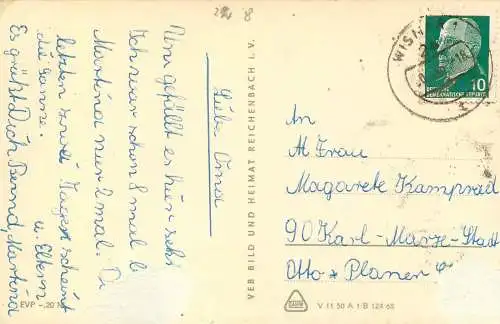 24 8
Liebe Oma
Nun gefällt es hier sehr
Ich war schon 8 mal b
Martina nur 2 mal. Di
letzten zwei Tagen scheint
die Sonne.
Es grüßt Dich Bernd, Martina
u. Eltern
EVP -,20 M
VEB BILD UND HEIMAT REICHENBACH I. V.
WISM
10
DEUTSCHE
DEMOKRATISCHE REPUBLIK
An
Frau
Magarete Kamprad
90 Karl-Marx-Stadt
Otto-Planer
V 11 50 A 1/B 124 65